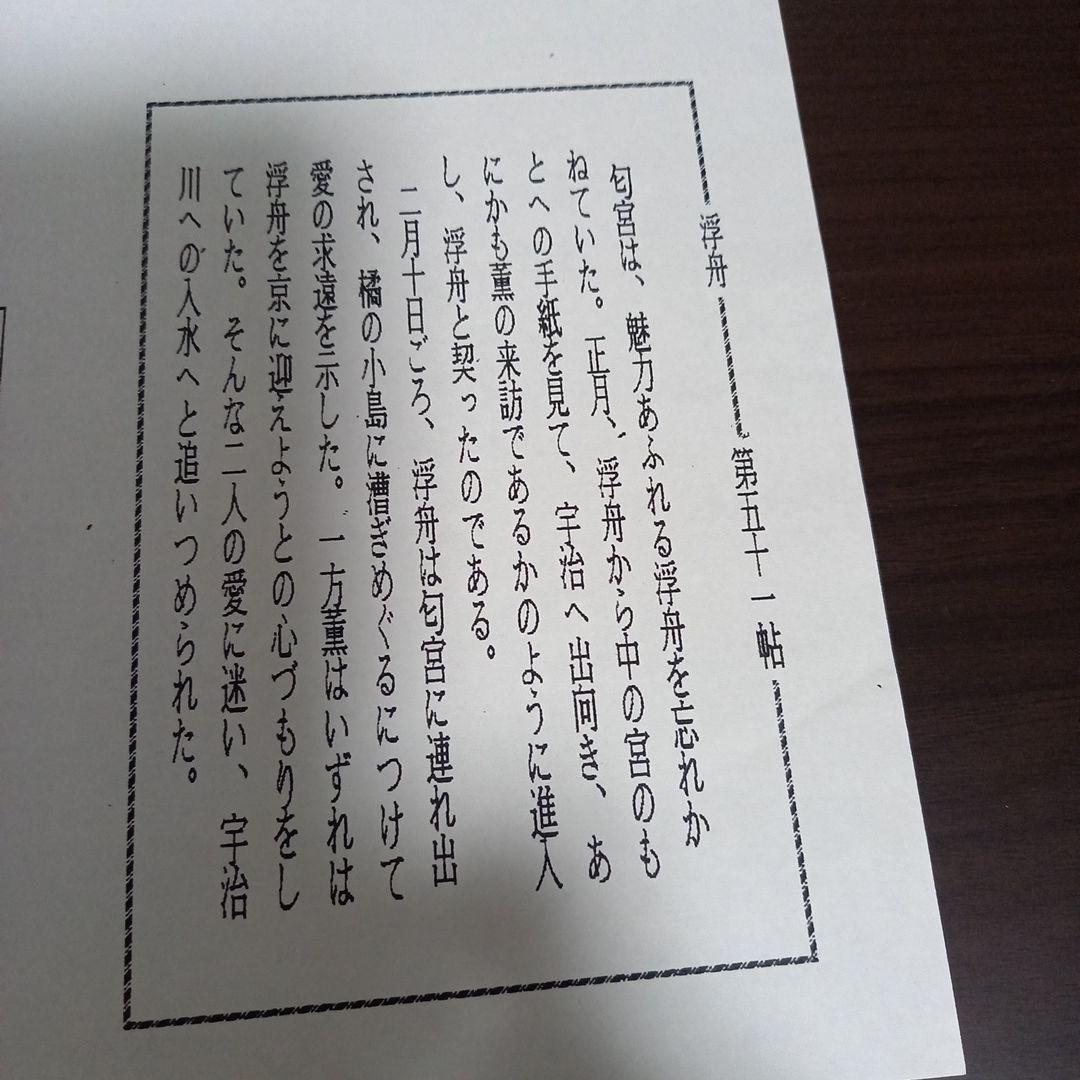 浮舟 第五十一帖
匂宮は、魅力あふれる浮舟を忘れか
ねていた。正月、浮舟から中の宮のも
とへの手紙を見て、宇治へ出向き、あ
にかも薫の来訪であるかのように進入
し、浮舟と契ったのである。
二月十日ごろ、浮舟は匂宮に連れ出
され、橘の小島に漕ぎめぐるにつけて
愛の求遠を示した。一方薫はいずれは
浮舟を京に迎えようとの心づもりをし
ていた。そんな二人の愛に迷い、宇治
川への入水へと追いつめられた。